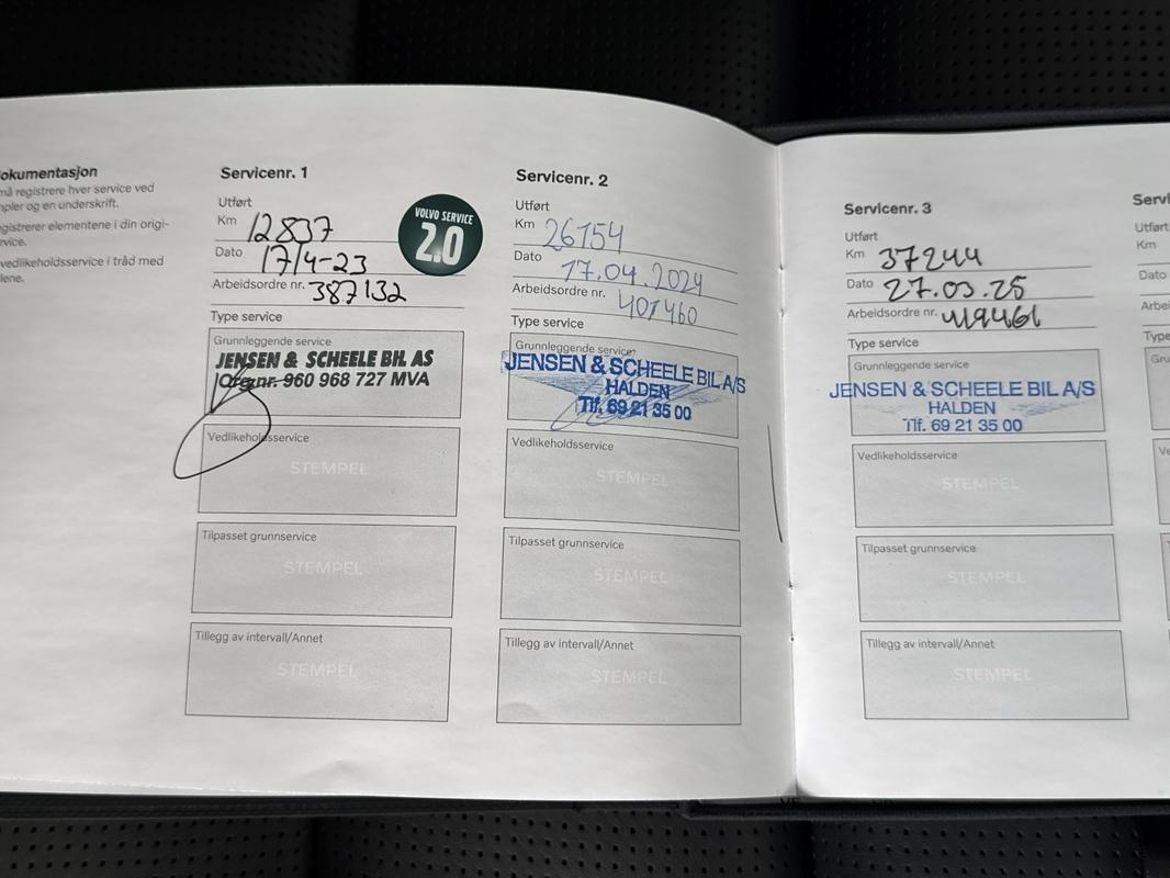 okumentasjon
må registrere hver service ved
mpler og en underskrift.
gistrerer elementene i din origi-
rvice.
vedlikeholdsservice i tråd med
lene.
Servicenr. 1
Utført
Km 12837
Dato 17/4-23
Arbeidsordre nr. 387132
Type service
Grunnleggende service
JENSEN & SCHEELE BIL AS
Orgnr. 960 968 727 MVA
Vedlikeholdsservice
STEMPEL
Tilpasset grunnservice
STEMPEL
Tillegg av intervall/Annet
STEMPEL
VOLVO SERVICE
2.0
Servicenr. 2
Utført
Km 26154
Dato 17.04.2024
Arbeidsordre nr. 401460
Type service
Grunnleggende service
JENSEN & SCHEELE BIL A/S
HALDEN
Tlf. 69 21 35 00
Vedlikeholdsservice
STEMPEL
Tilpasset grunnservice
STEMPEL
Tillegg av intervall/Annet
STEMPEL
Servicenr. 3
Utført
Km 37244
Dato 27.03.25
Arbeidsordre nr. 419461
Type service
Grunnleggende service
JENSEN & SCHEELE BIL A/S
HALDEN
Tlf. 69 21 35 00
Vedlikeholdsservice
STEMPEL
Tilpasset grunnservice
STEMPEL
Tillegg av intervall/Annet
STEMPEL
Servi
Utført
Km
Dato
Arbei
Type
Gru
Ve
T